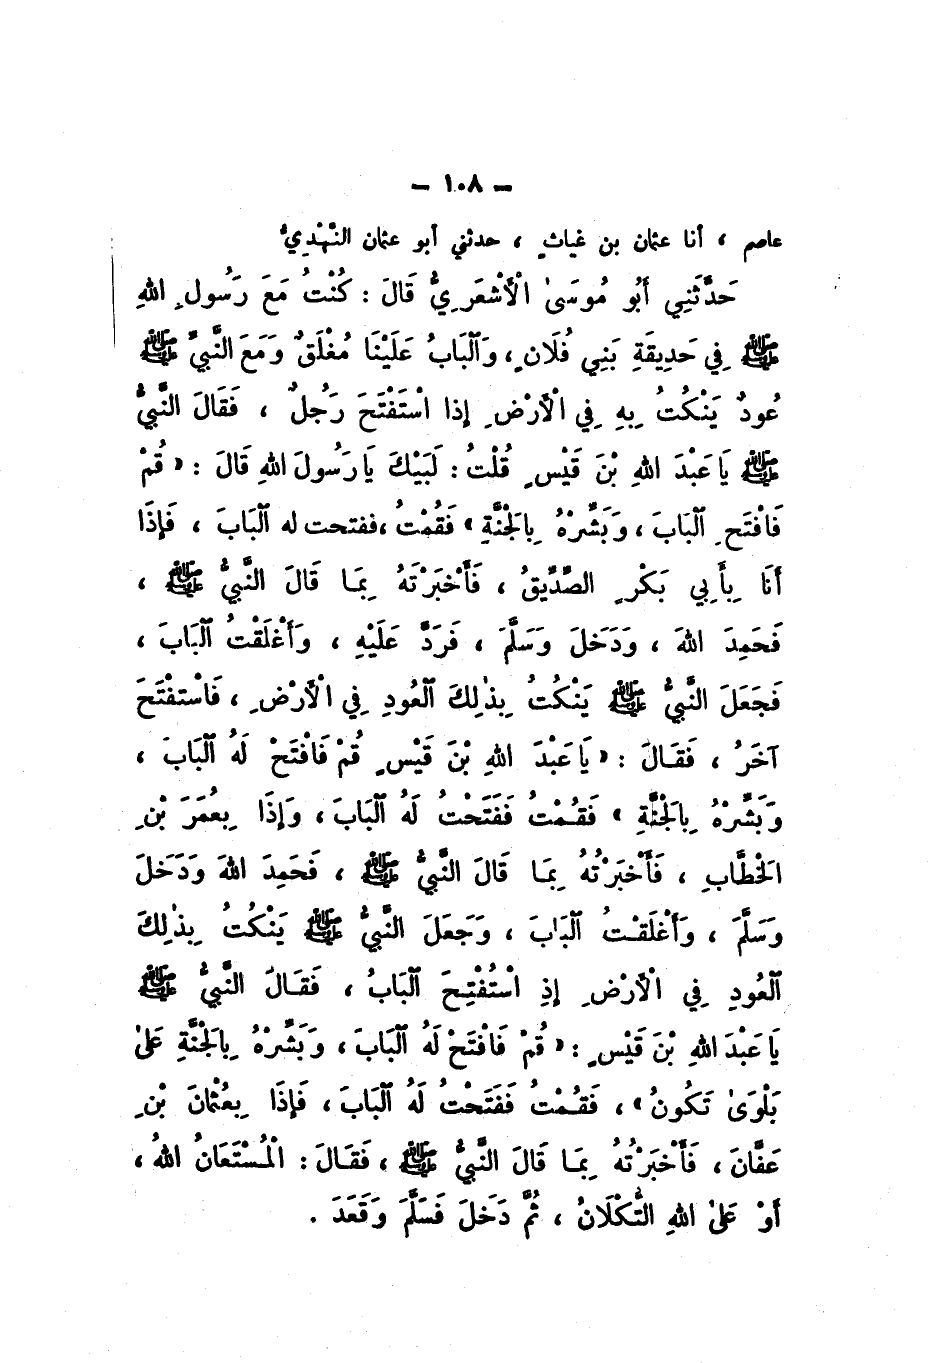 – ١٠٨ –
عاصم ، أنا عثمان بن غياثٍ ، حدثني أبو عثمان النَّهْدِيُّ
حَدَّثَنِي أَبُو مُوسَىٰ الْأَشْعَرِيُّ قَالَ : كُنْتُ مَعَ رَسُولِ اللهِ
ﷺ فِي حَدِيقَةِ بَنِي فُلَانٍ ، وَالْبَابُ عَلَيْنَا مُغْلَقٌ وَمَعَ النَّبِيِّ ﷺ
عُودٌ يَنْكُتُ بِهِ فِي الْأَرْضِ إِذا اسْتَفْتَحَ رَجُلٌ ، فَقَالَ النَّبِيُّ
ﷺ يَا عَبْدَ اللهِ بْنَ قَيْسٍ قُلْتُ : لَبَّيْكَ يَا رَسُولَ اللهِ قَالَ : « قُمْ
فَافْتَحِ الْبَابَ ، وَبَشِّرْهُ بِالْجَنَّةِ » فَقُمْتُ ، ففتحت له الْبَابَ ، فَإِذَا
أَنَا بِأَبِي بَكْرٍ الصِّدِّيقُ ، فَأَخْبَرْتَهُ بِمَا قَالَ النَّبِيُّ ﷺ ،
فَحَمِدَ اللهَ ، وَدَخَلَ وَسَلَّمَ ، فَرَدَّ عَلَيْهِ ، وَأَغْلَقْتُ الْبَابَ ،
فَجَعَلَ النَّبِيُّ ﷺ يَنْكُتُ بِذٰلِكَ الْعُودِ فِي الْأَرْضِ ، فَاسْتفْتَحَ
آخَرُ ، فَقَالَ : « يَا عَبْدَ اللهِ بْنَ قَيْسٍ قُمْ فَافْتَحْ لَهُ الْبَابَ ،
وَبَشِّرْهُ بِالْجَنَّةِ » فَقُمْتُ فَفَتَحْتُ لَهُ الْبَابَ ، وَإِذَا بِعُمَرَ بْنِ
الْخَطَّابِ ، فَأَخْبَرْتُهُ بِمَا قَالَ النَّبِيُّ ﷺ ، فَحَمِدَ اللهَ وَدَخَلَ
وَسَلَّمَ ، وَأَغْلَقْتُ الْبَابَ ، وَجَعَلَ النَّبِيُّ ﷺ يَنْكُتُ بِذٰلِكَ
الْعُودِ فِي الْأَرْضِ إِذِ اسْتُفْتِحَ الْبَابُ ، فَقَالَ النَّبِيُّ ﷺ
يَا عَبْدَ اللهِ بْنَ قَيْسٍ : « قُمْ فَافْتَحْ لَهُ الْبَابَ ، وَبَشِّرْهُ بِالْجَنَّةِ عَلىٰ
بَلْوَىٰ تَكُونُ » ، فَقُمْتُ فَفَتَحْتُ لَهُ الْبَابَ ، فَإِذَا بِعُثْمَانَ بْنِ
عَفَّانَ ، فَأَخْبَرْتُهُ بِمَا قَالَ النَّبِيُّ ﷺ ، فَقَالَ : الْمُسْتَعَانُ اللهُ ،
أَوْ عَلىٰ اللهِ التُّكْلَانُ ، ثُمَّ دَخَلَ فَسَلَّمَ وَقَعَدَ .